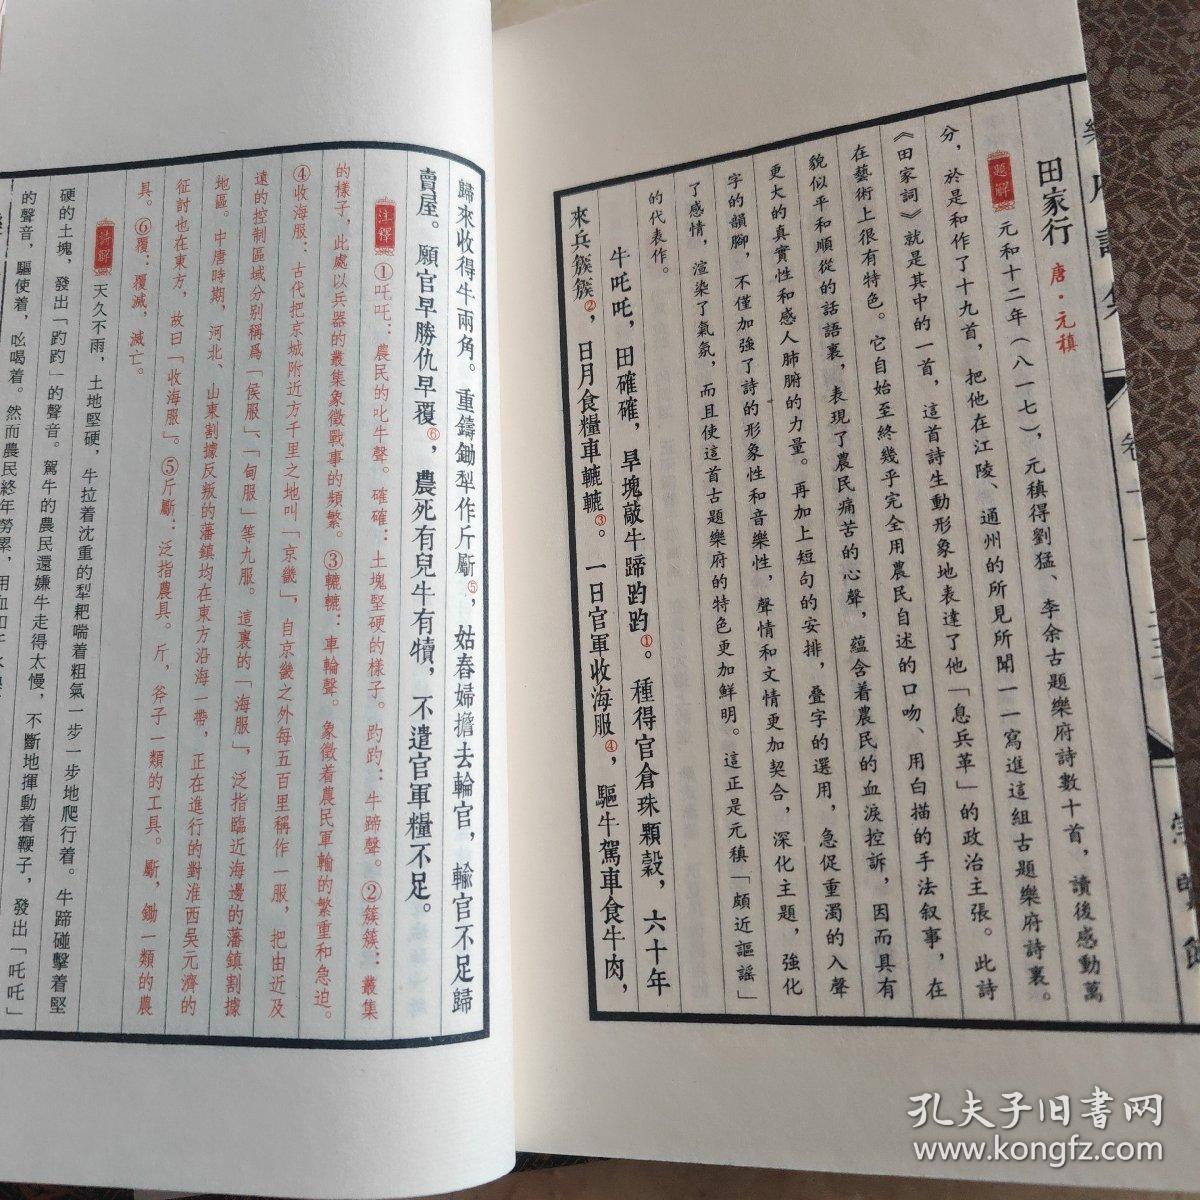 田家行 唐·元稹
題解 元和十二年（八一七），元稹得劉猛、李余古題樂府詩數十首，讀後感動萬
分，於是和作了十九首，把他在江陵、通州的所見所聞一一寫進這組古題樂府詩裏。
《田家詞》就是其中的一首，這首詩生動形象地表達了他「息兵革」的政治主張。此詩
在藝術上很有特色。它自始至終幾乎完全用農民自述的口吻、用白描的手法叙事，在
貌似平和順從的話語裏，表現了農民痛苦的心聲，蘊含着農民的血淚控訴，因而具有
更大的真實性和感人肺腑的力量。再加上短句的安排，叠字的選用，急促重濁的入聲
字的韻脚，不僅加強了詩的形象性和音樂性，聲情和文情更加契合，深化主題，強化
了感情，渲染了氣氛，而且使這首古題樂府的特色更加鮮明。這正是元稹「頗近謳謠」
的代表作。
牛吒吒，田確確，旱塊敲牛蹄趵趵①。種得官倉珠顆穀，六十年
來兵簇簇②，日月食糧車轆轆③。一日官軍收海服④，驅牛駕車食牛肉，
歸來收得牛兩角。重鑄鋤犁作斤斸⑤，姑舂婦擔去輸官，輸官不足歸
賣屋。願官早勝仇早覆⑥，農死有兒牛有犢，不遣官軍糧不足。
注釋 ①吒吒：農民的叱牛聲。確確：土塊堅硬的樣子。趵趵：牛蹄聲。②簇簇：叢集
的樣子，此處以兵器的叢集象徵戰事的頻繁。③轆轆：車輪聲。象徵着農民軍輸的繁重和急迫。
④收海服：古代把京城附近方千里之地叫「京畿」，自京畿之外每五百里稱作一服，把由近及
遠的控制區域分别稱爲「侯服」、「甸服」等九服。這裏的「海服」，泛指臨近海邊的藩鎮割據
地區。中唐時期，河北、山東割據反叛的藩鎮均在東方沿海一帶，正在進行的對淮西吴元濟的
征討也在東方，故曰「收海服」。⑤斤斸：泛指農具。斤，斧子一類的工具。斸，鋤一類的農
具。⑥覆：覆滅，滅亡。
詩解 天久不雨，土地堅硬，牛拉着沈重的犁耙喘着粗氣一步一步地爬行着。牛蹄碰擊着堅
硬的土塊，發出「趵趵」的聲音。駕牛的農民還嫌牛走得太慢，不斷地揮動着鞭子，發出「吒吒」
的聲音，驅使着，吆喝着。然而農民終年勞累，用血
孔夫子旧书网
www.kongfz.com